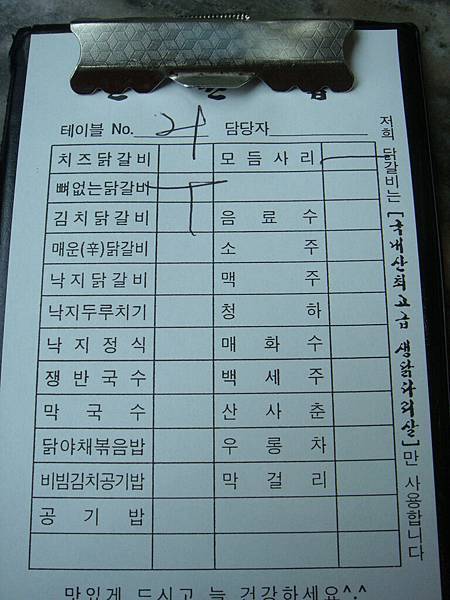 테이블 No. 담당자
치즈닭갈비 모듬사리
뼈없는닭갈비
김치닭갈비 음료수
매운(辛)닭갈비 소주
낙지닭갈비 맥주
낙지두루치기 청하
낙지정식 매화수
쟁반국수 백세주
막국수 산사춘
닭야채볶음밥 우롱차
비빔김치공기밥 막걸리
공기밥
맛있게 드시고 늘 건강하세요^.^
저희 닭갈비는 [국내산최고급 생닭다리살]만 사용합니다